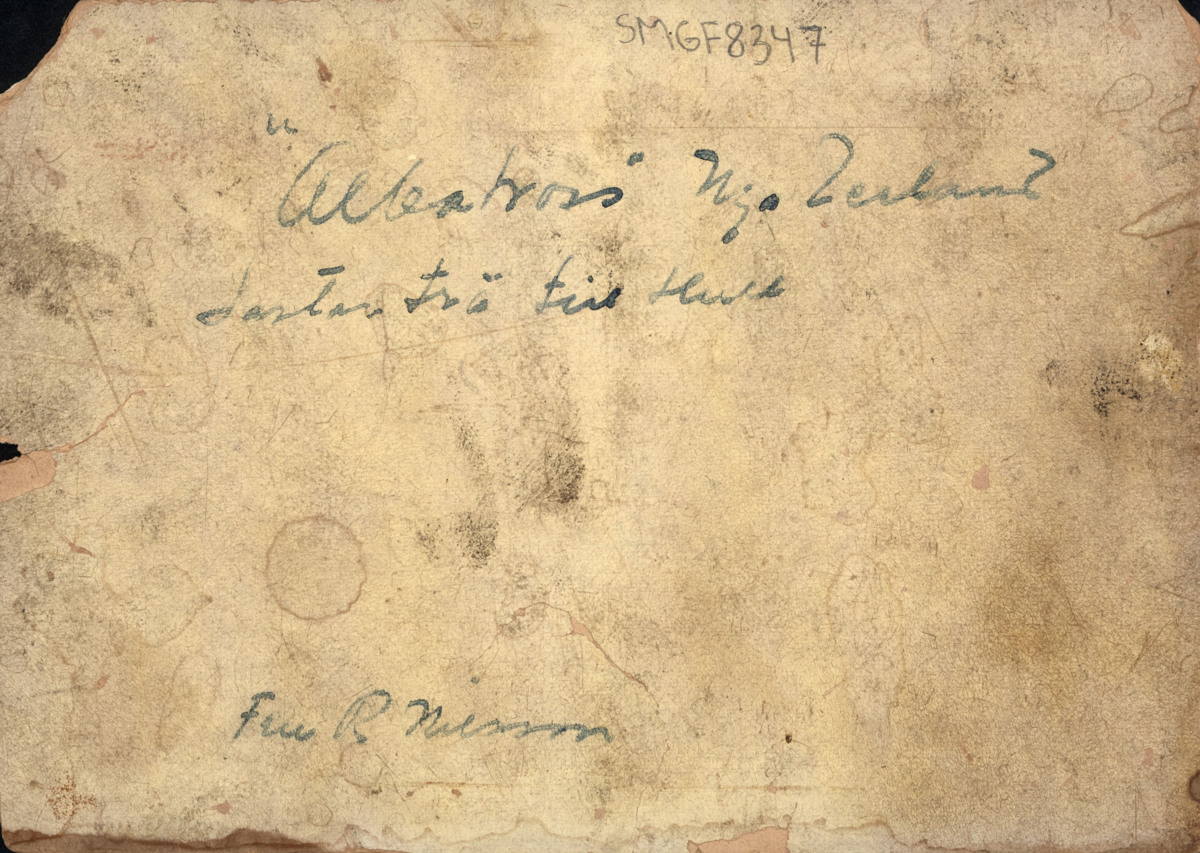 SMGF8347
"Albatros" Nya Zeeland
lastar trä till Hull
Fru R Nilsson